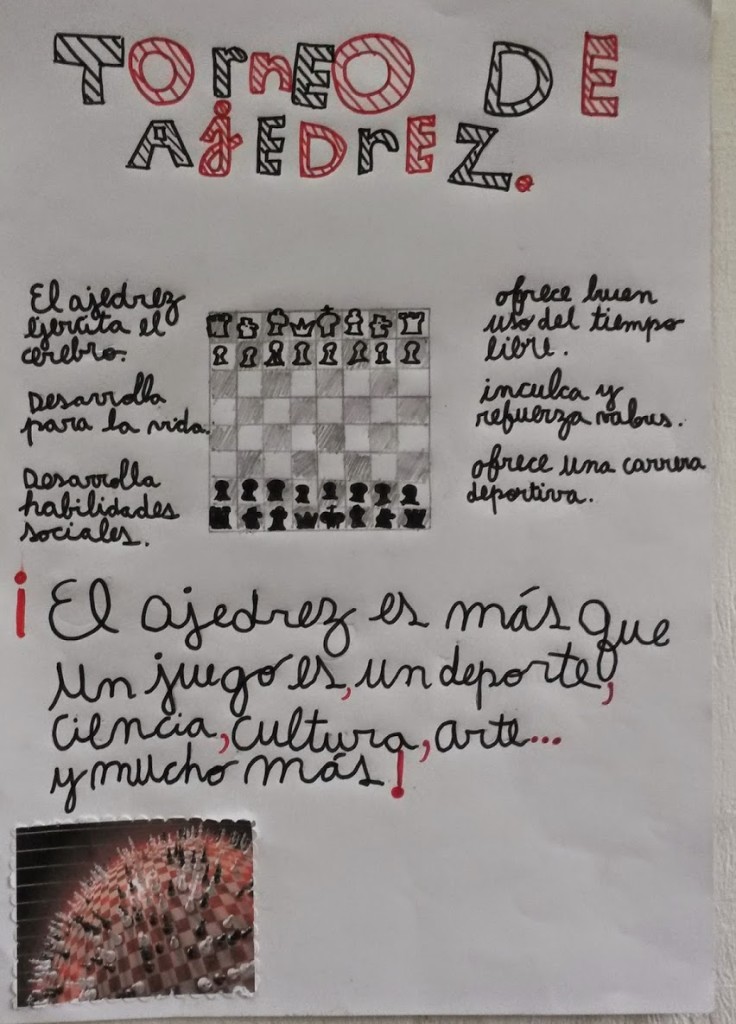 TOrnEO DE
AjEDrEZ.
El ajedrez
ejercita el
cerebro.
Desarrolla
para la vida.
Desarrolla
habilidades
sociales.
ofrece buen
uso del tiempo
libre.
inculca y
refuerza valores.
ofrece una carrera
deportiva.
¡El ajedrez es más que
un juego es, un deporte,
ciencia, cultura, arte...
y mucho más!